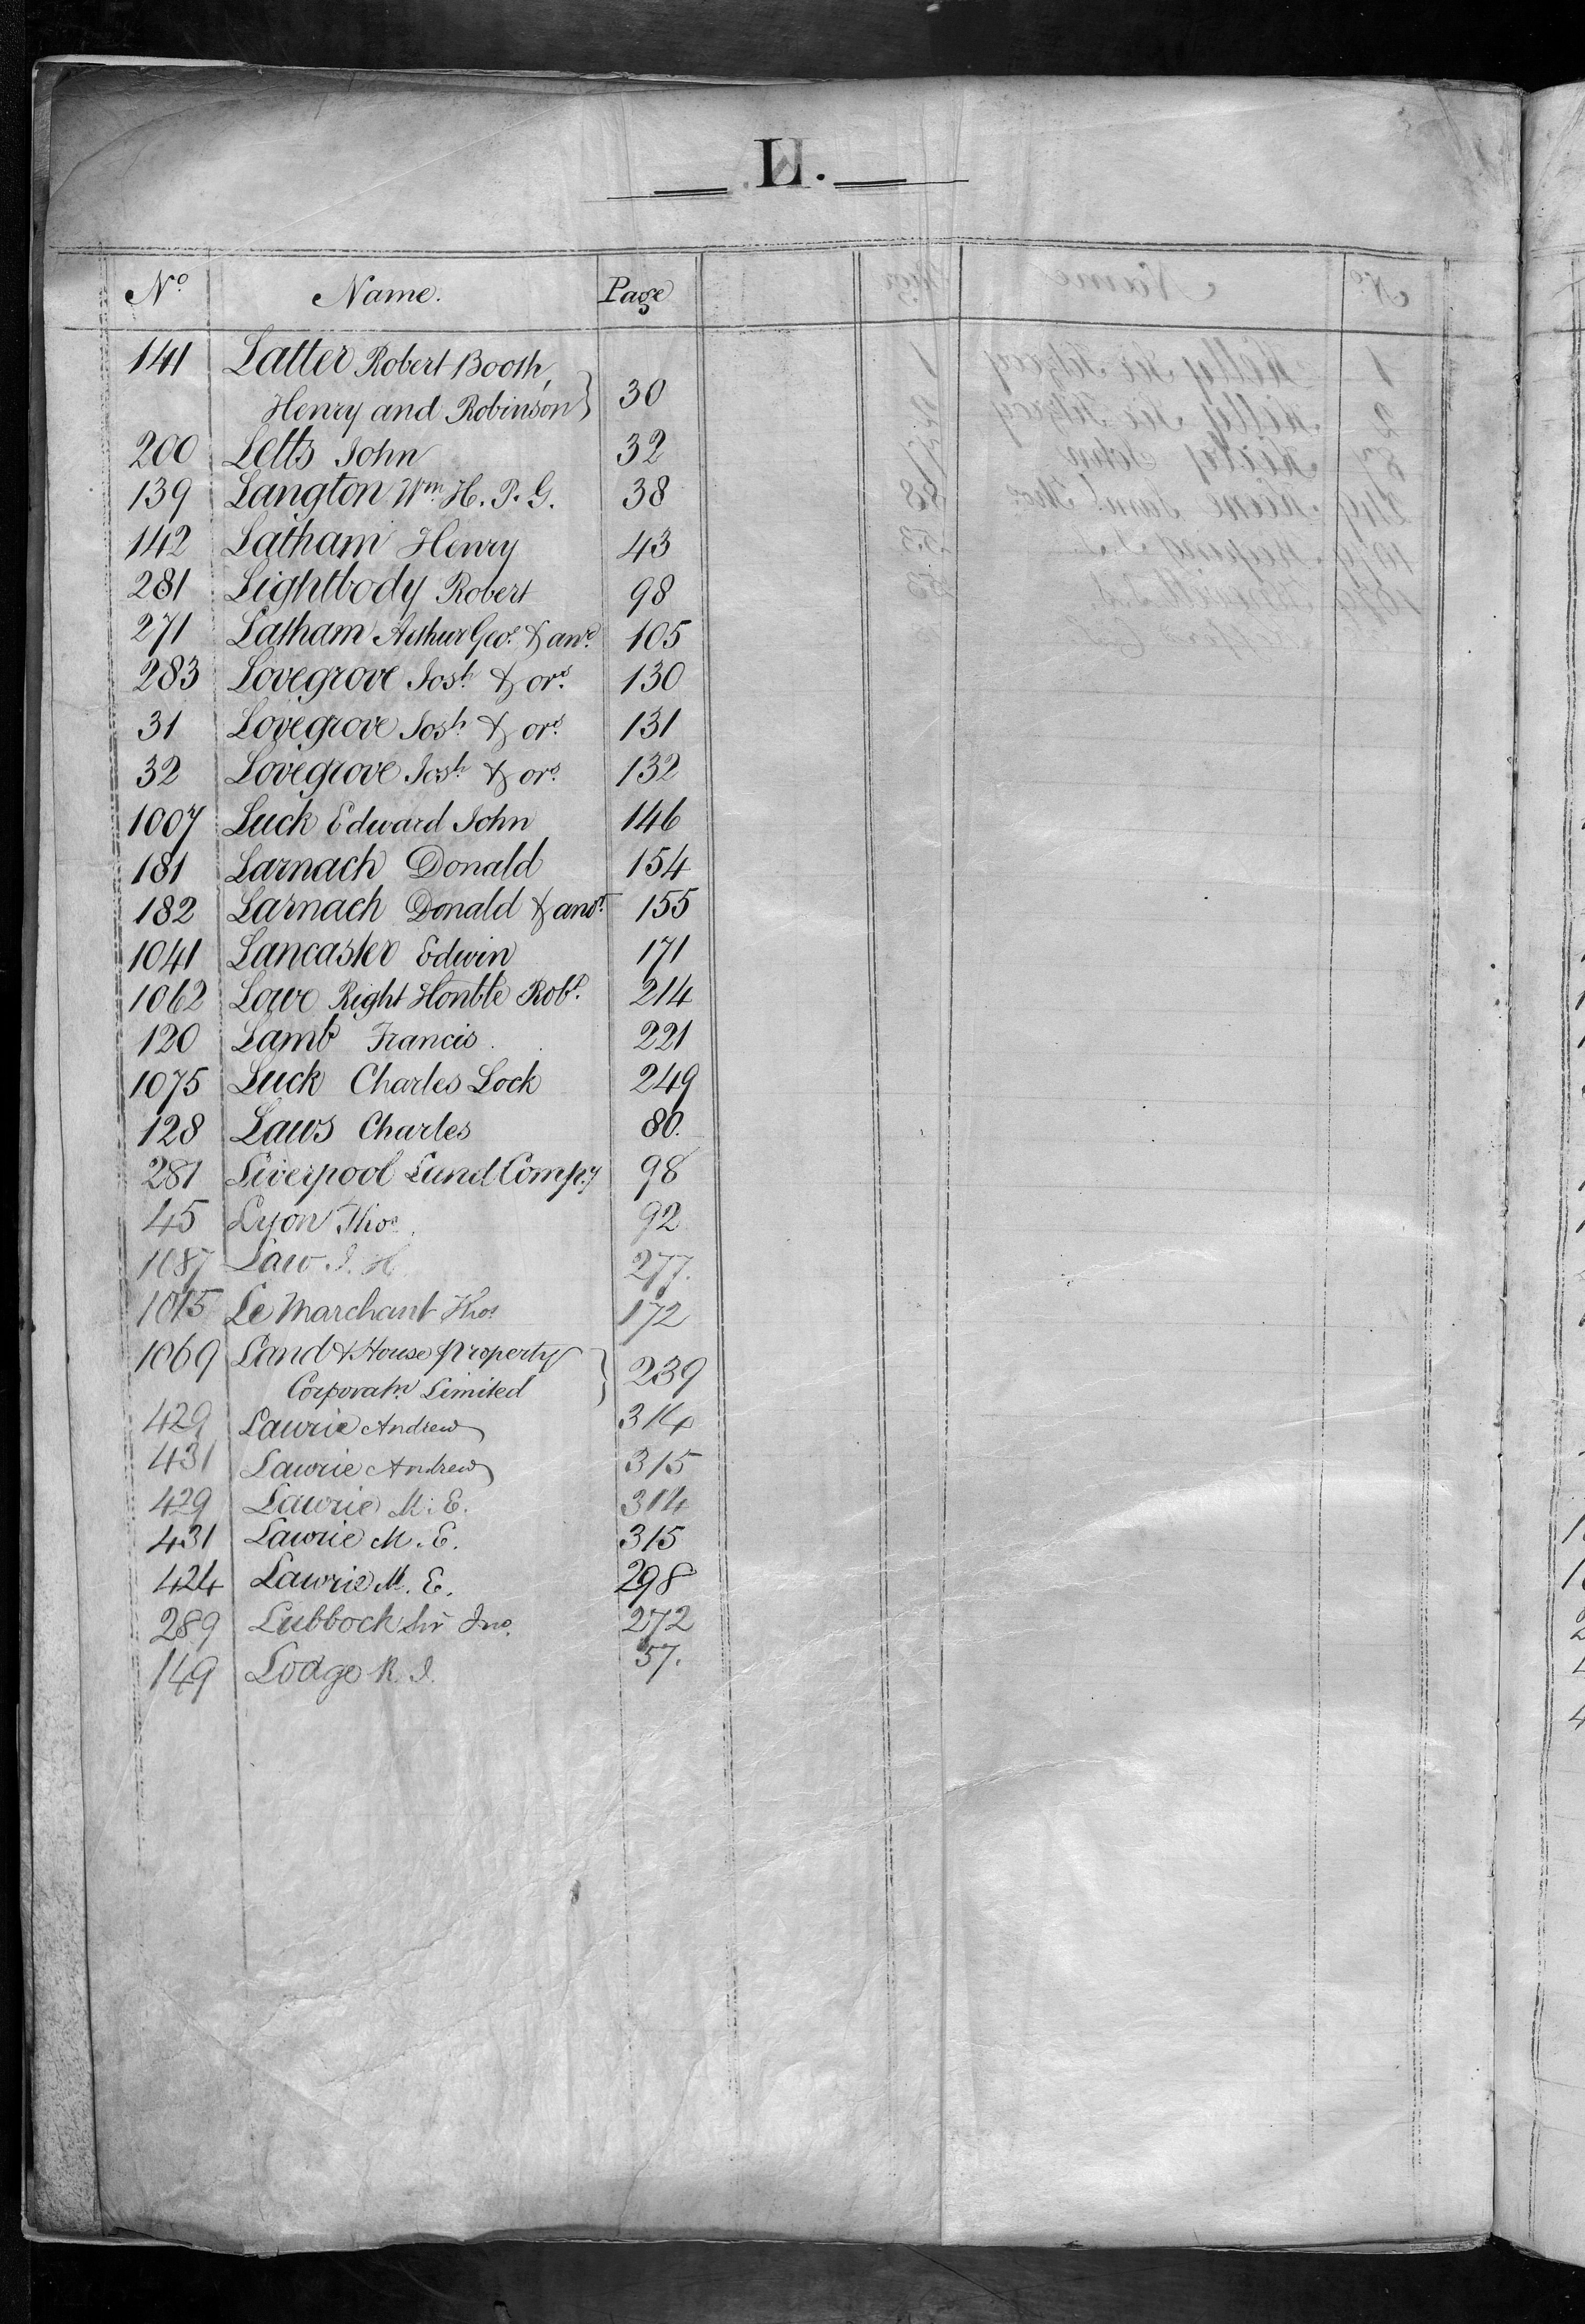 L.
No. Name. Page
141 Latter Robert Booth,
Henry and Robinson } 30
200 Letts John 32
139 Langton Wm. H. P. G. 38
142 Latham Henry 43
281 Lightbody Robert 98
271 Latham Arthur Geo. & anr. 105
283 Lovegrove Josh. & ors. 130
31 Lovegrove Josh. & ors. 131
32 Lovegrove Josh. & ors. 132
1007 Luck Edward John 146
181 Larnach Donald 154
182 Larnach Donald & anor. 155
1041 Lancaster Edwin 171
1062 Lowe Right Honble Robt. 214
120 Lamb Francis 221
1075 Luck Charles Lock 249
128 Laws Charles 80.
281 Liverpool Land Compy 98
45 Lyon Thos. 92
1087 Law J. H. 277.
1015 Le Marchant Thos. 172
1069 Land & House Property
Corporatn. Limited } 239
429 Lawrie Andrew 314
431 Lawrie Andrew 315
429 Lawrie M. E. 314
431 Lawrie M. E. 315
424 Lawrie M. E. 298
289 Lubbock Sir Jno. 272
149 Lodge R. J. 57.